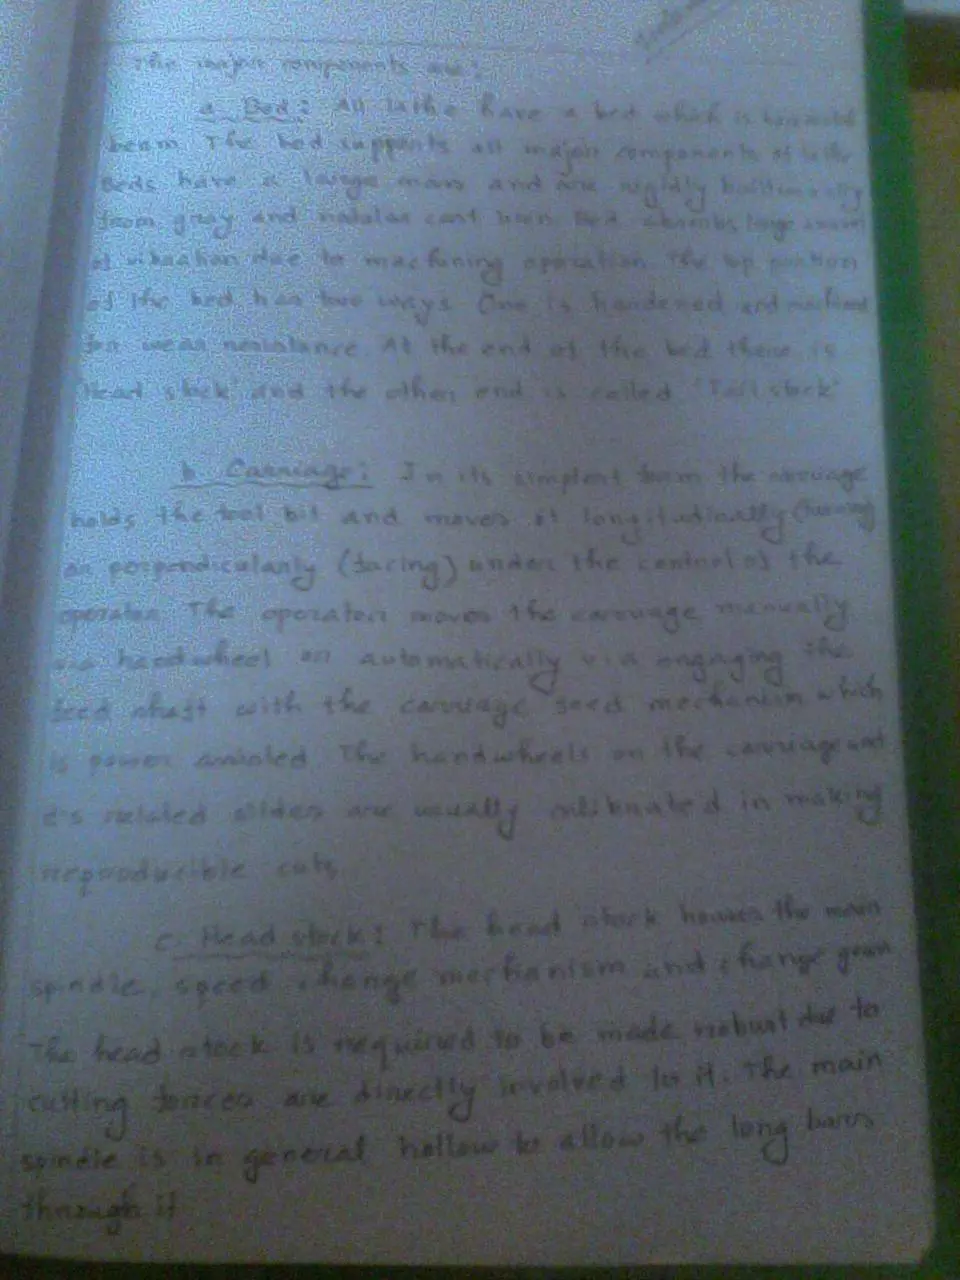 The major components are:
a. Bed: All lathe have a bed which is horizontal
beam. The bed supports all major components of lathe
Beds have a large mass and are rigidly built
from gray and nodular cast iron. Bed absorbs large amount
of vibration due to machining operation. The top portion
of the bed has two ways. One is hardened and machined
for wear resistance. At the end of the bed there is
'Head stock' and the other end is called 'Tail stock'
b. Carriage: In its simplest form the carriage
holds the tool bit and moves it longitudinally (turning)
or perpendicularly (facing) under the control of the
operator. The operator moves the carriage manually
via handwheel or automatically via engaging the
feed shaft with the carriage feed mechanism which
is power assisted. The handwheels on the carriage and
it's related slides are usually in making
reproducible cuts
c. Head stock: The head stock houses the main
spindle, speed change mechanism and change gears
The head stock is required to be made robust due to
cutting forces are directly involved to it. The main
spindle is in general hollow to allow the long bars
through it